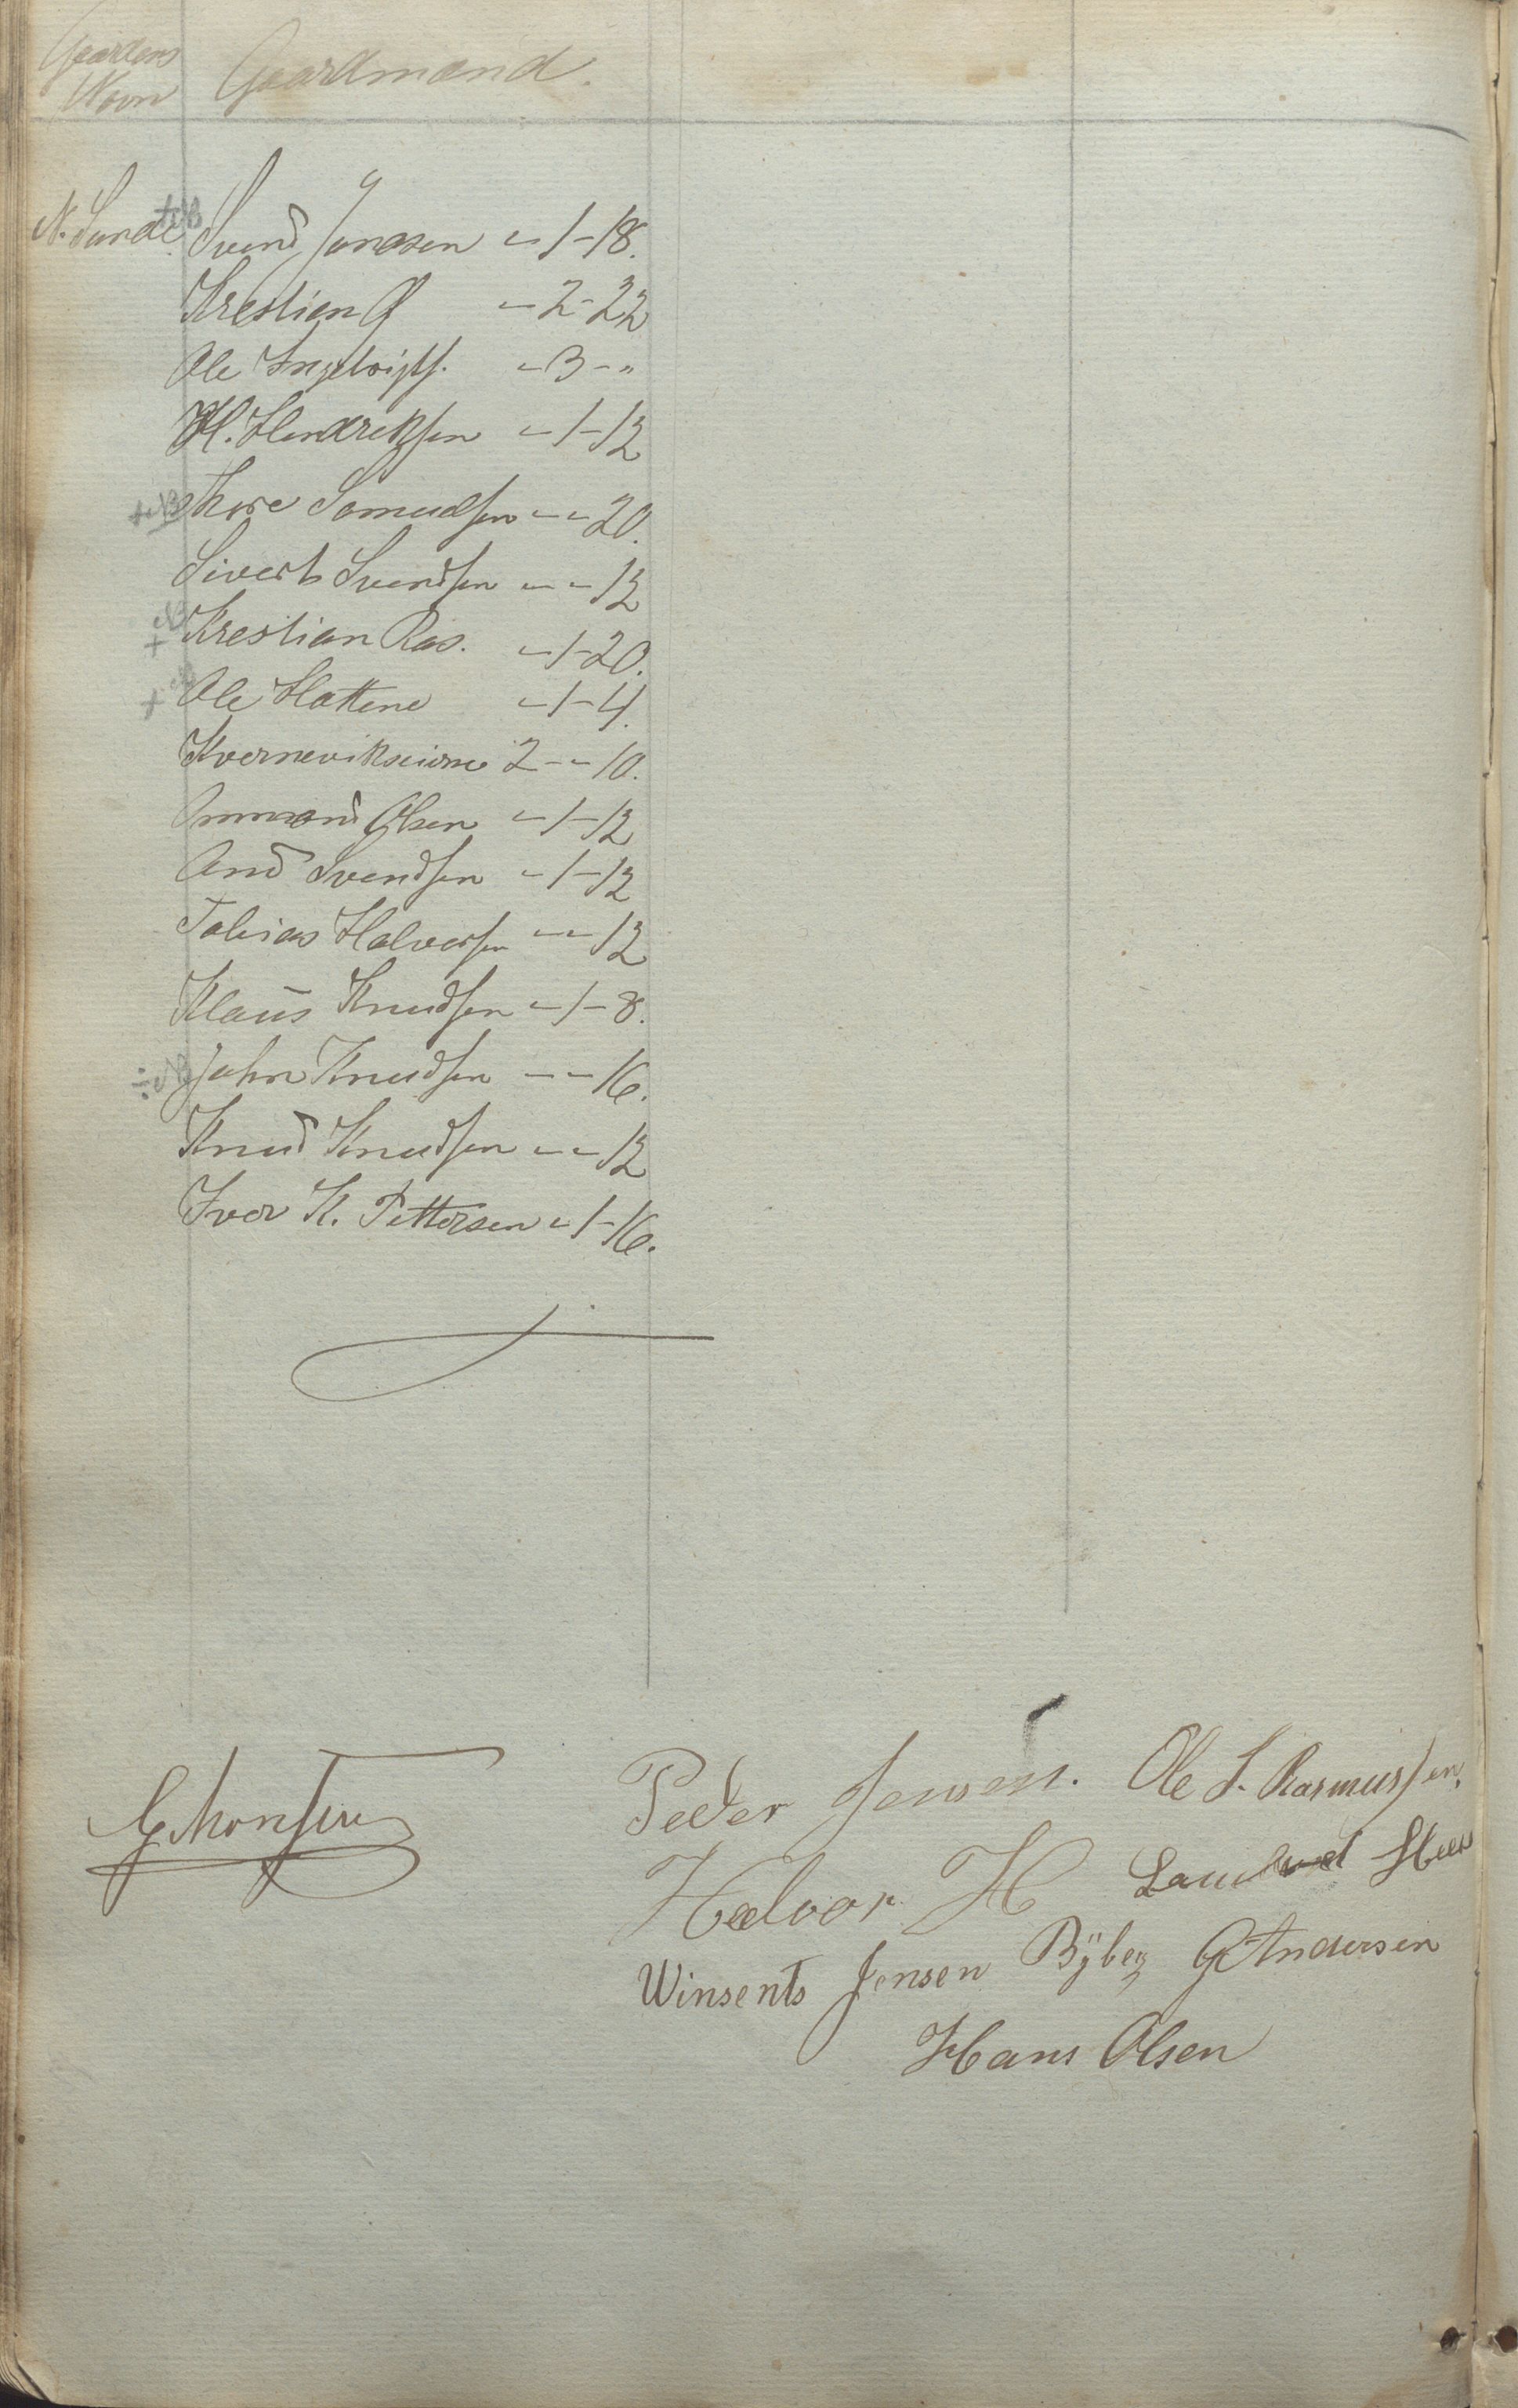 Gaardens Gaardmænd.
Navn
N. Sunde. +NB Svend Jonasen " 1-18.
Krestian O " - 2-22
Ole Ingebrigts. " 3 - "
H. Hendriksen " 1-12
+NB Thore Samuelsen " - " 20.
Sivert Svendsen " - " 12
+NB Krestian Ras. " 1-20.
+NB Ole Hattene " 1-4.
Kvernevikseierne 2 - " 10.
Ammond Olsen " 1-12
And Svendsen " 1-12
Tobias Halvorsen " - " 12
Klaus Knudsen " 1-8.
÷NB John Knudsen " - " 16.
Knud Knudsen " - " 12
Iver K. Pettersen " 1-16.
G Monsen
Peder Jensen. Ole S. Rasmussen.
Halvor H
Winsents Jensen Byberg G Andersen
Hans Olsen